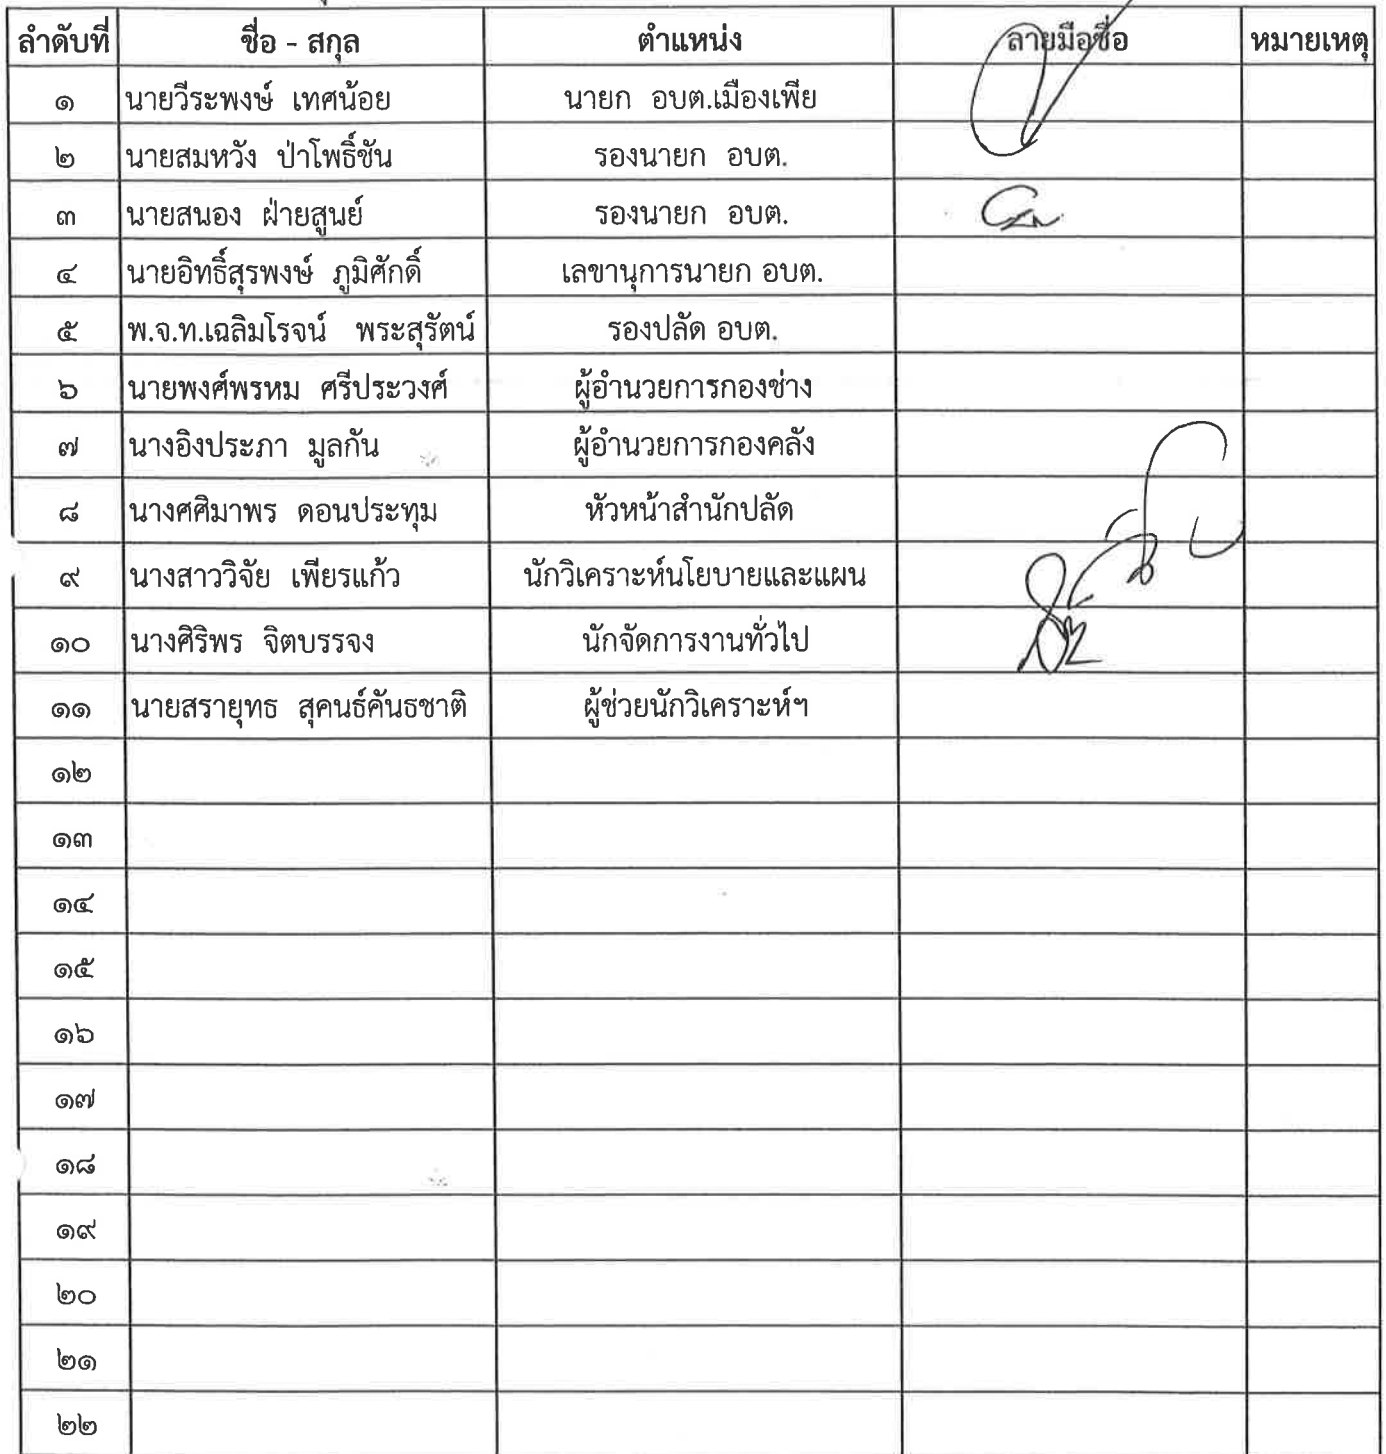 ลำดับที่ ชื่อ - สกุล ตำแหน่ง ลายมือชื่อ หมายเหตุ
๑ นายวีระพงษ์ เทศน้อย นายก อบต.เมืองเพีย
๒ นายสมหวัง ป่าโพธิ์ชัน รองนายก อบต.
๓ นายสนอง ฝ่ายสูนย์ รองนายก อบต.
๔ นายอิทธิ์สุรพงษ์ ภูมิศักดิ์ เลขานุการนายก อบต.
๕ พ.จ.ท.เฉลิมโรจน์ พระสุรัตน์ รองปลัด อบต.
๖ นายพงศ์พรหม ศรีประวงศ์ ผู้อำนวยการกองช่าง
๗ นางอิงประภา มูลกัน ผู้อำนวยการกองคลัง
๘ นางศศิมาพร ดอนประทุม หัวหน้าสำนักปลัด
๙ นางสาววิจัย เพียรแก้ว นักวิเคราะห์นโยบายและแผน
๑๐ นางศิริพร จิตบรรจง นักจัดการงานทั่วไป
๑๑ นายสรายุทธ สุคนธ์คันธชาติ ผู้ช่วยนักวิเคราะห์ฯ
๑๒
๑๓
๑๔
๑๕
๑๖
๑๗
๑๘
๑๙
๒๐
๒๑
๒๒